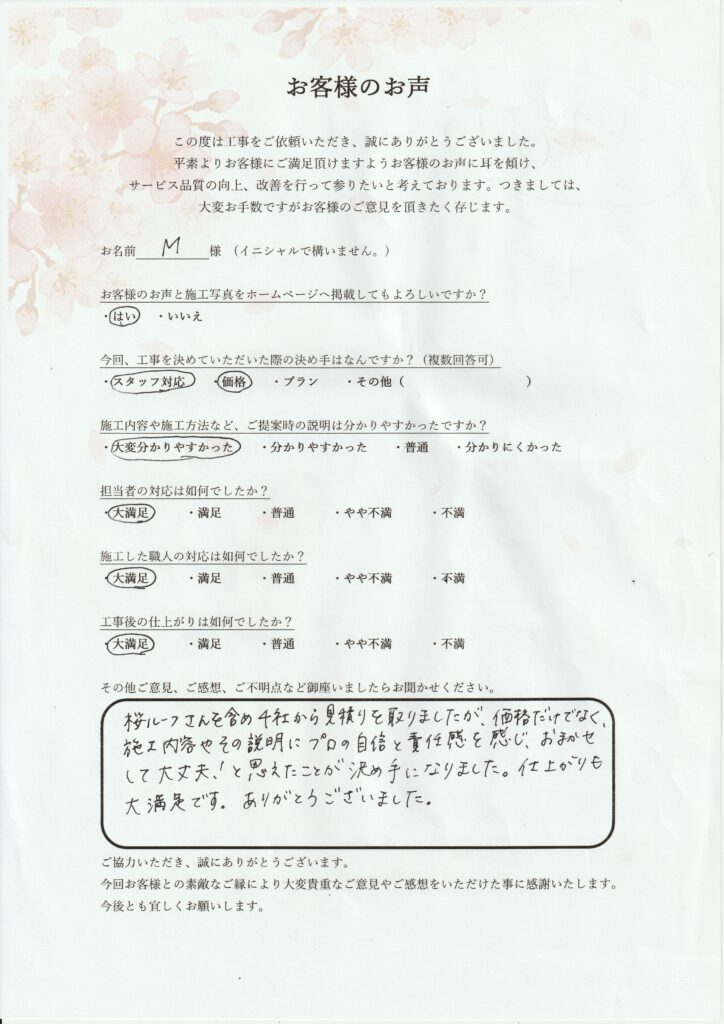 お客様のお声
この度は工事をご依頼いただき、誠にありがとうございました。
平素よりお客様にご満足頂けますようお客様のお声に耳を傾け、
サービス品質の向上、改善を行って参りたいと考えております。つきましては、
大変お手数ですがお客様のご意見を頂きたく存じます。
お名前 M 様 （イニシャルで構いません。）
お客様のお声と施工写真をホームページへ掲載してもよろしいですか？
・はい ・いいえ
今回、工事を決めていただいた際の決め手はなんですか？（複数回答可）
・スタッフ対応 ・価格 ・プラン ・その他（ ）
施工内容や施工方法など、ご提案時の説明は分かりやすかったですか？
・大変分かりやすかった ・分かりやすかった ・普通 ・分かりにくかった
担当者の対応は如何でしたか？
・大満足 ・満足 ・普通 ・やや不満 ・不満
施工した職人の対応は如何でしたか？
・大満足 ・満足 ・普通 ・やや不満 ・不満
工事後の仕上がりは如何でしたか？
・大満足 ・満足 ・普通 ・やや不満 ・不満
その他ご意見、ご感想、ご不明点など御座いましたらお聞かせください。
桜ルーフさんを含め4社から見積りを取りましたが、価格だけでなく、
施工内容やその説明にプロの自信と責任感を感じ、おまかせ
して大丈夫！と思えたことが決め手になりました。仕上がりも
大満足です。ありがとうございました。
ご協力いただき、誠にありがとうございます。
今回お客様との素敵なご縁により大変貴重なご意見やご感想をいただけた事に感謝いたします。
今後とも宜しくお願いします。